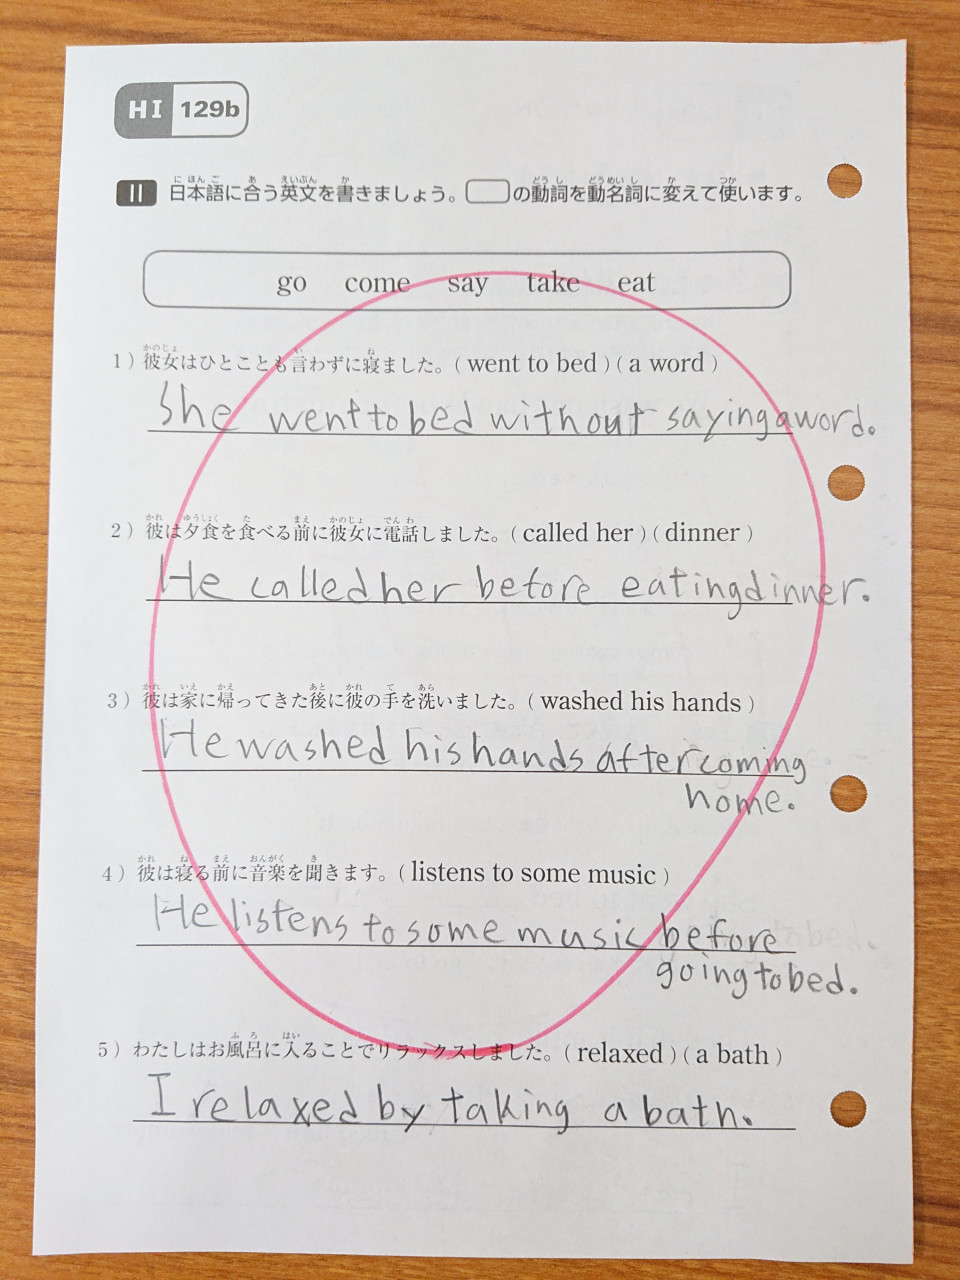 HI 129b
II 日本語に合う英文を書きましょう。 の動詞を動名詞に変えて使います。
go come say take eat
1) 彼女はひとことも言わずに寝ました。(went to bed)(a word)
She went to bed without saying a word.
2) 彼は夕食を食べる前に彼女に電話しました。(called her)(dinner)
He called her before eating dinner.
3) 彼は家に帰ってきた後に彼の手を洗いました。(washed his hands)
He washed his hands after coming
home.
4) 彼は寝る前に音楽を聞きます。(listens to some music)
He listens to some music before
going to bed.
5) わたしはお風呂に入ることでリラックスしました。(relaxed)(a bath)
I relaxed by taking a bath.